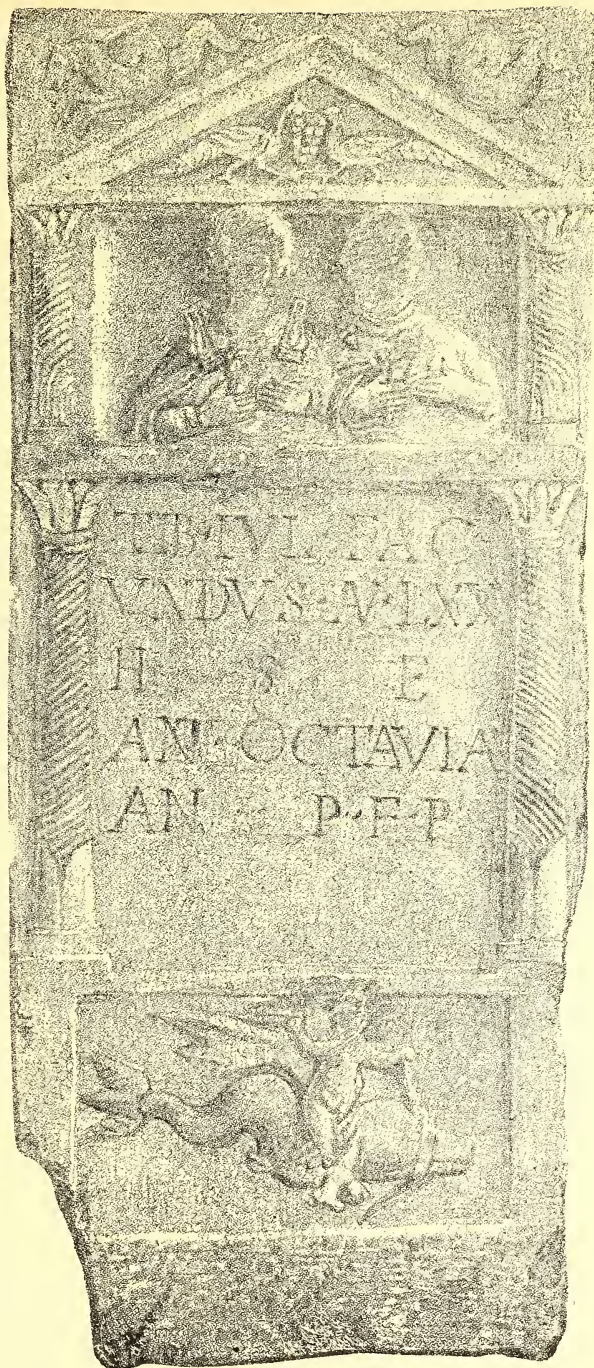 TIB·IVL·FAC
VNDVS·N·LXX
H S E
ANI·OCTAVIA
AN P·F·P